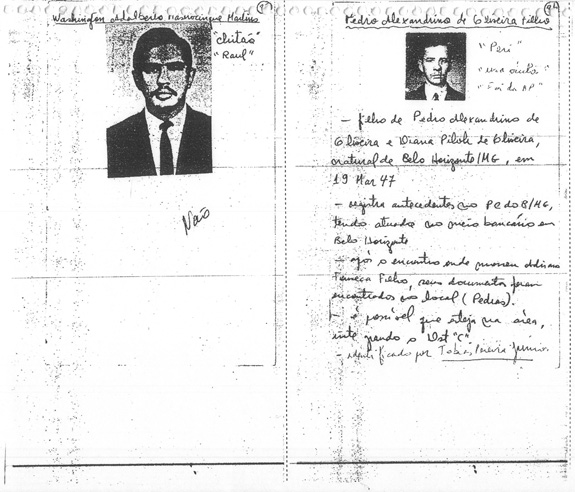 Washington Adalberto Mastrocinque Martins
"chitão"
"Raul"
Não
Pedro Alexandrino de Oliveira Filho
"Peri"
"usa óculos"
"Foi da AP"
- filho de Pedro Alexandrino de
Oliveira e Diana Piloh de Oliveira,
natural de Belo Horizonte/MG, em
19 Mar 47
- registra antecedentes no PC do B/MG,
tendo atuado no meio bancário em
Belo Horizonte
- após o encontro onde morreu Adriano
Fonseca Filho, seus documentos foram
encontrados no local (Pedras).
- é possível que esteja na área,
integrando o Dst "C".
- identificado por Tobias Pereira Junior.